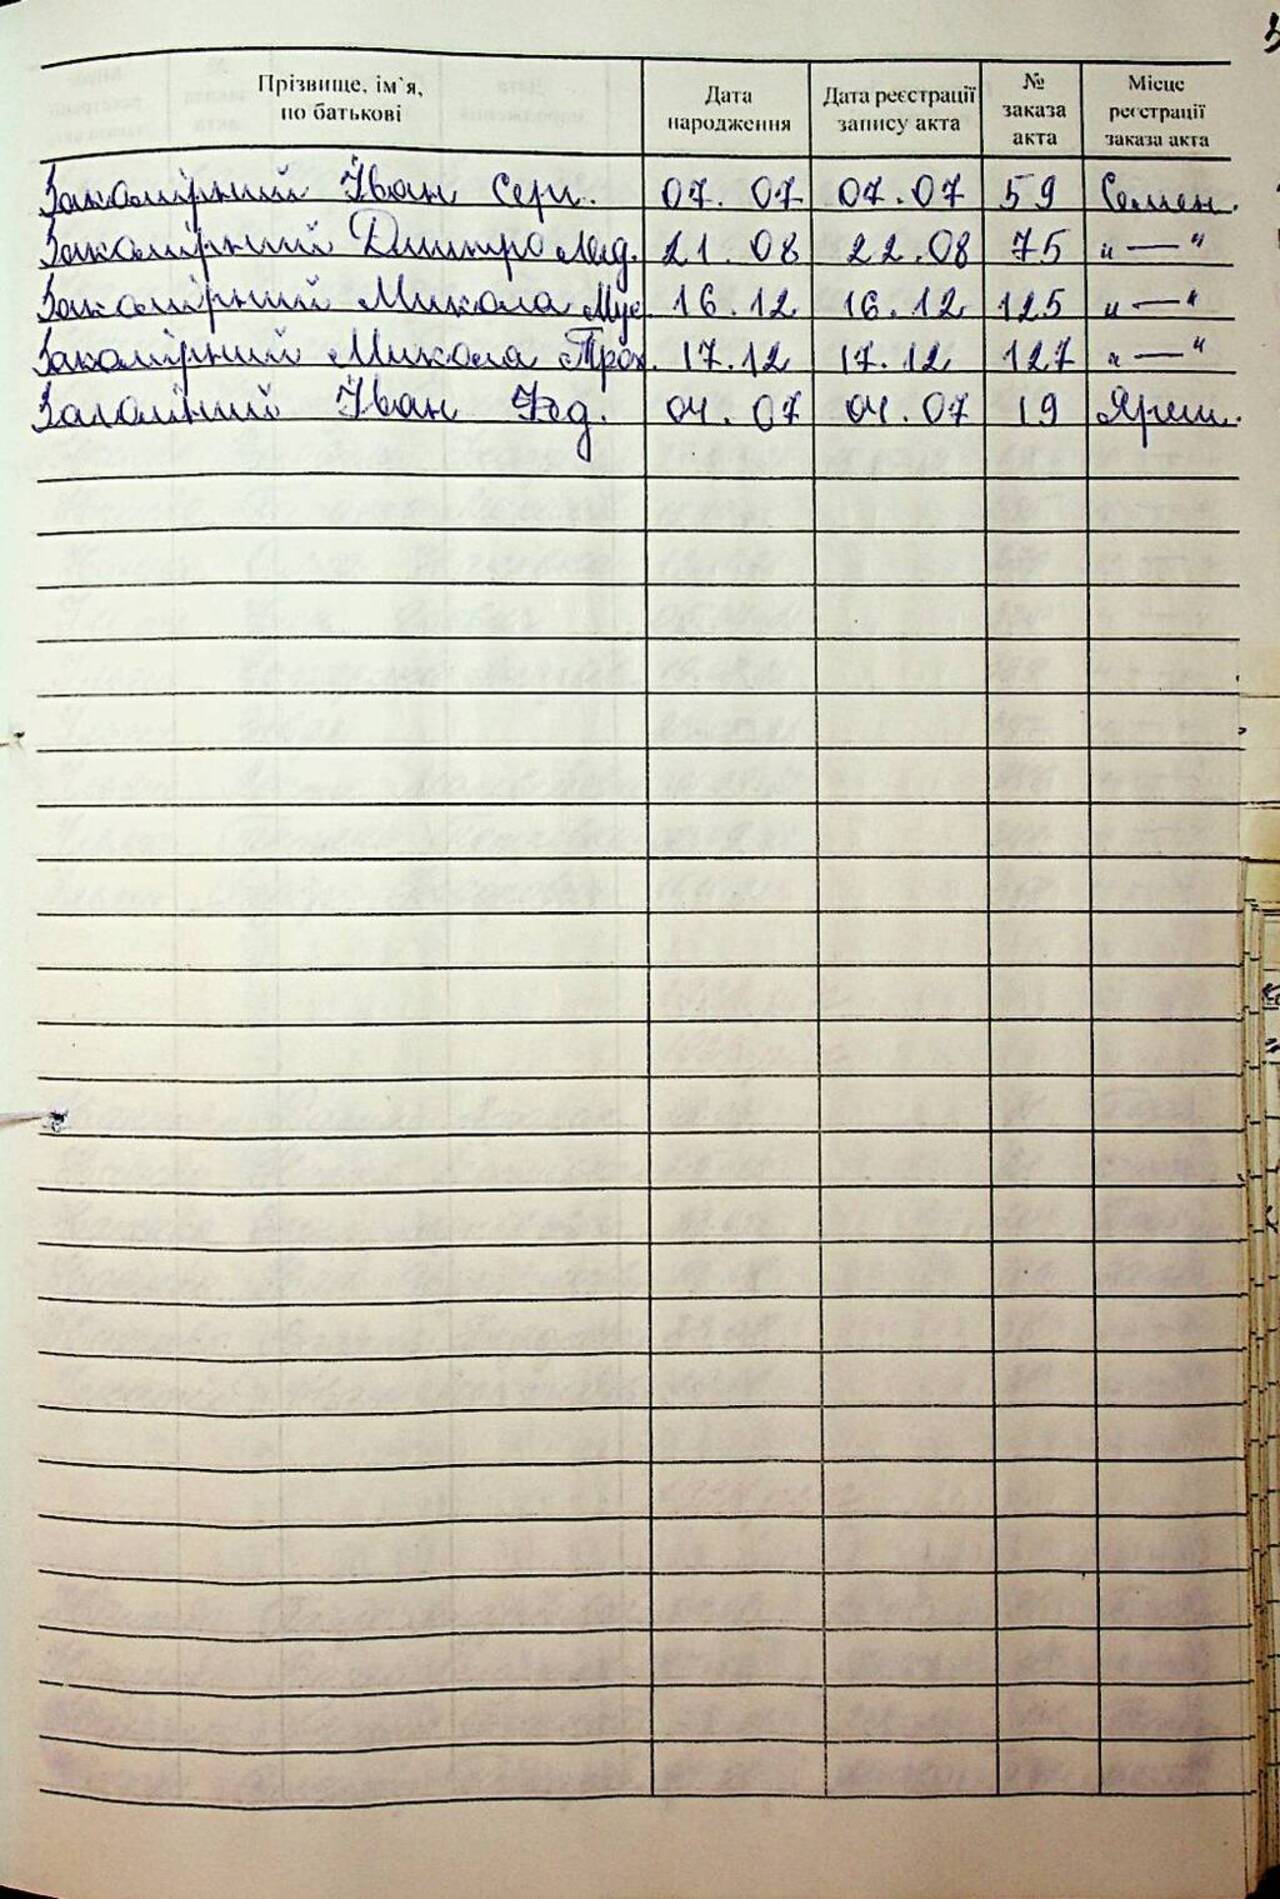 Прізвище, ім`я, по батькові Дата народження Дата реєстрації запису акта № заказа акта Місце реєстрації заказа акта
Закомірний Іван Серг. 07. 07 07.07 59 Семен.
Закомірний Дмитро 21. 08 22.08 75 "—"
Закомірний Микола Мус. 16.12 16.12 125 "—"
Закомірний Микола Трох. 17.12 17.12 127 "—"
Іван Фед. 04. 07 04.07 19 Яреш.